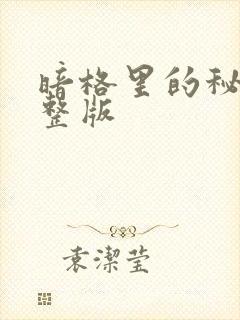 暗格里的秘
整版
袁潔莹